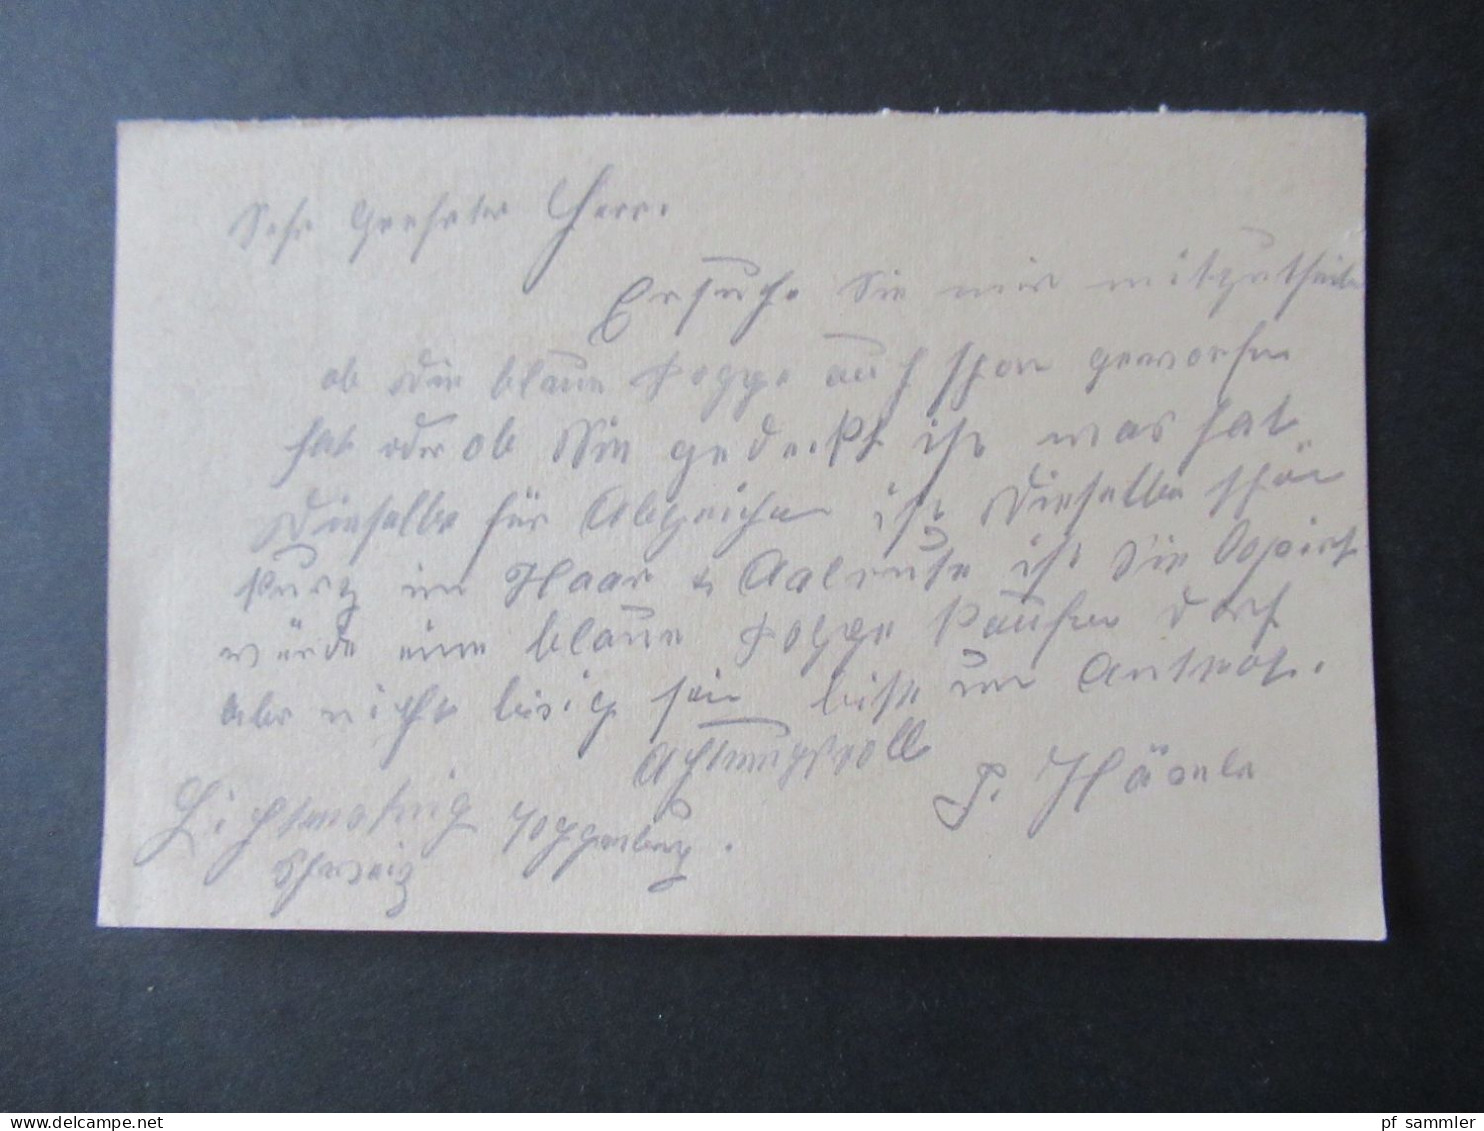 Sehr Geehrter Herr.
Ersuche Sie mir mitzutheilen
ob die blaue Dogge auch schon geworfen
hat oder ob Sie gedeckt ist was hat
Dieselbe für Abzeichen ist Dieselbe schön
kurz im Haar & ist die
würde eine blaue Dogge kaufen darf
aber nicht bisig sein bitte um Antwort.
Achtungsvoll
J. Häsele
Lichtensteig Toggenburg.
Schweiz
pf sammler
delcampe.net